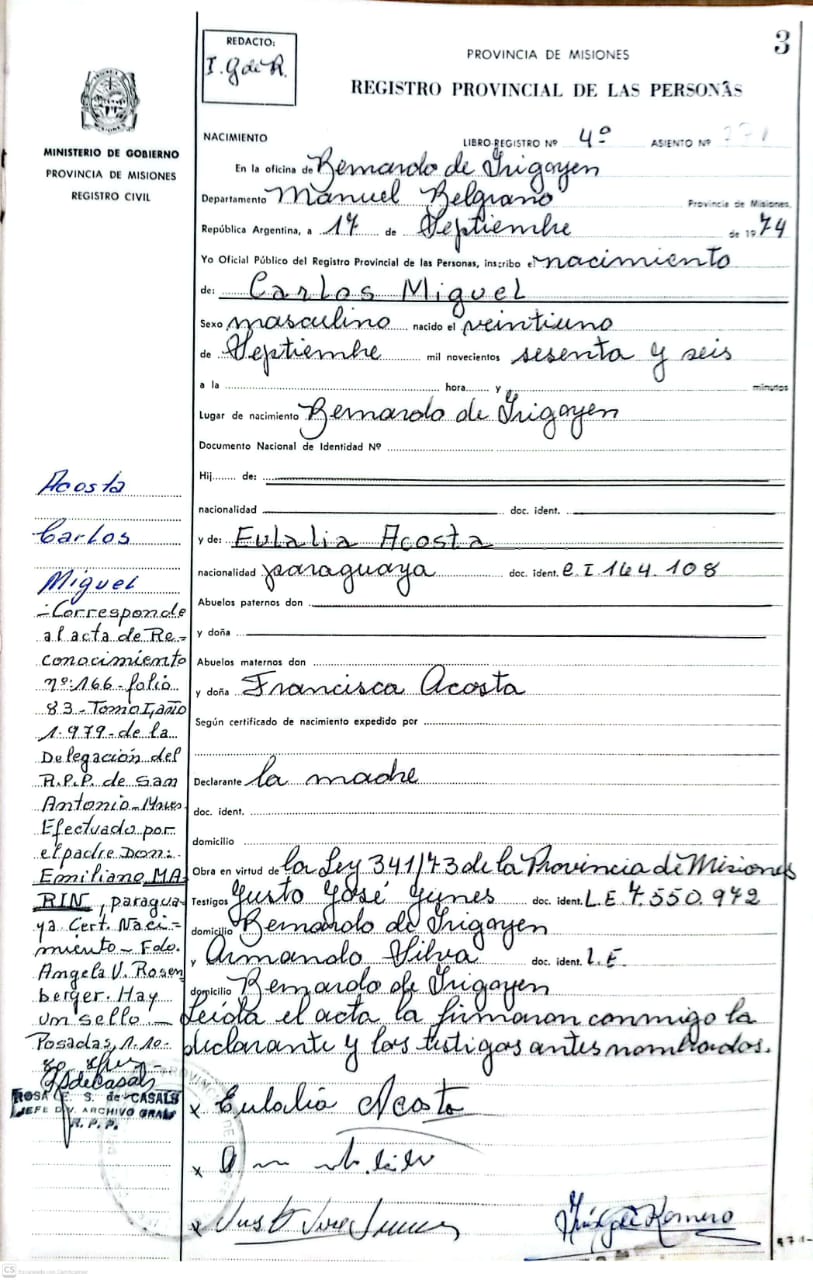 3
REDACTO:
I. G de R.
PROVINCIA DE MISIONES
REGISTRO PROVINCIAL DE LAS PERSONAS
MINISTERIO DE GOBIERNO
PROVINCIA DE MISIONES
REGISTRO CIVIL
NACIMIENTO
LIBRO-REGISTRO Nº 4º ASIENTO Nº
En la oficina de Bernardo de Irigoyen
Departamento Manuel Belgrano Provincia de Misiones,
República Argentina, a 17 de Septiembre de 1974
Yo Oficial Público del Registro Provincial de las Personas, inscribo el nacimiento
de: Carlos Miguel
Sexo masculino nacido el veintiuno
de Septiembre mil novecientos sesenta y seis
a la hora y minutos
Lugar de nacimiento Bernardo de Irigoyen
Documento Nacional de Identidad Nº
Hij de:
nacionalidad doc. ident.
y de: Eulalia Acosta
nacionalidad paraguaya doc. ident. C.I. 164.108
Abuelos paternos don
y doña
Abuelos maternos don
y doña Francisca Acosta
Según certificado de nacimiento expedido por
Declarante la madre
doc. ident.
domicilio
Obra en virtud de la Ley 341/73 de la Provincia de Misiones
Testigos Justo José Yunes doc. ident. L.E. 7.550.972
domicilio Bernardo de Irigoyen
y Armando Silva doc. ident. L.E.
domicilio Bernardo de Irigoyen
Leída el acta la firmaron conmigo la
declarante y los testigos antes nombrados.
x Eulalia Acosta
x
x
de Romero
Acosta
Carlos
Miguel
-Corresponde
al acta de Re-
conocimiento
nº:166-folio
83-Tomo I, año
1.979-de la
Delegación del
R.P.P. de San
Antonio-Mnes.
Efectuado por
el padre Don:
Emiliano MA
RIN, paragua-
ya Cert. Naci-
miento- Fdo.
Angela V. Rosen
berger. Hay
un sello.-
Posadas, 1.10-
80
ROSA E. S. de CASALS
JEFE DIV. ARCHIVO GRAL
R. P. P.
CS Escaneado con CamScanner